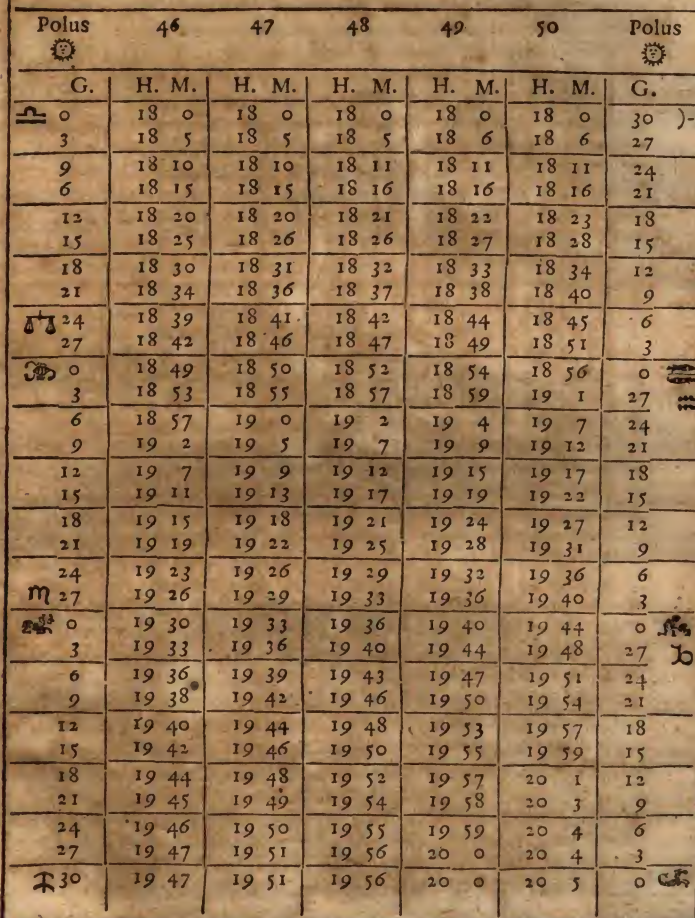 Polus 46 47 48 49 50 Polus
G. H. M. H. M. H. M. H. M. H. M. G.
♎ 0 18 0 18 0 18 0 18 0 18 0 30 )-
3 18 5 18 5 18 5 18 6 18 6 27
9 18 10 18 10 18 11 18 11 18 11 24
6 18 15 18 15 18 16 18 16 18 16 21
12 18 20 18 20 18 21 18 22 18 23 18
15 18 25 18 26 18 26 18 27 18 28 15
18 18 30 18 31 18 32 18 33 18 34 12
21 18 34 18 36 18 37 18 38 18 40 9
24 18 39 18 41 18 42 18 44 18 45 6
27 18 42 18 46 18 47 18 49 18 51 3
0 18 49 18 50 18 52 18 54 18 56 0
3 18 53 18 55 18 57 18 59 19 1 27 ♒
6 18 57 19 0 19 2 19 4 19 7 24
9 19 2 19 5 19 7 19 9 19 12 21
12 19 7 19 9 19 12 19 15 19 17 18
15 19 11 19 13 19 17 19 19 19 22 15
18 19 15 19 18 19 21 19 24 19 27 12
21 19 19 19 22 19 25 19 28 19 31 9
24 19 23 19 26 19 29 19 32 19 36 6
♏ 27 19 26 19 29 19 33 19 36 19 40 3
0 19 30 19 33 19 36 19 40 19 44 0
3 19 33 19 36 19 40 19 44 19 48 27 ♑
6 19 36 19 39 19 43 19 47 19 51 24
9 19 38 19 42 19 46 19 50 19 54 21
12 19 40 19 44 19 48 19 53 19 57 18
15 19 42 19 46 19 50 19 55 19 59 15
18 19 44 19 48 19 52 19 57 20 1 12
21 19 45 19 49 19 54 19 58 20 3 9
24 19 46 19 50 19 55 19 59 20 4 6
27 19 47 19 51 19 56 20 0 20 4 3
♐ 30 19 47 19 51 19 56 20 0 20 5 0